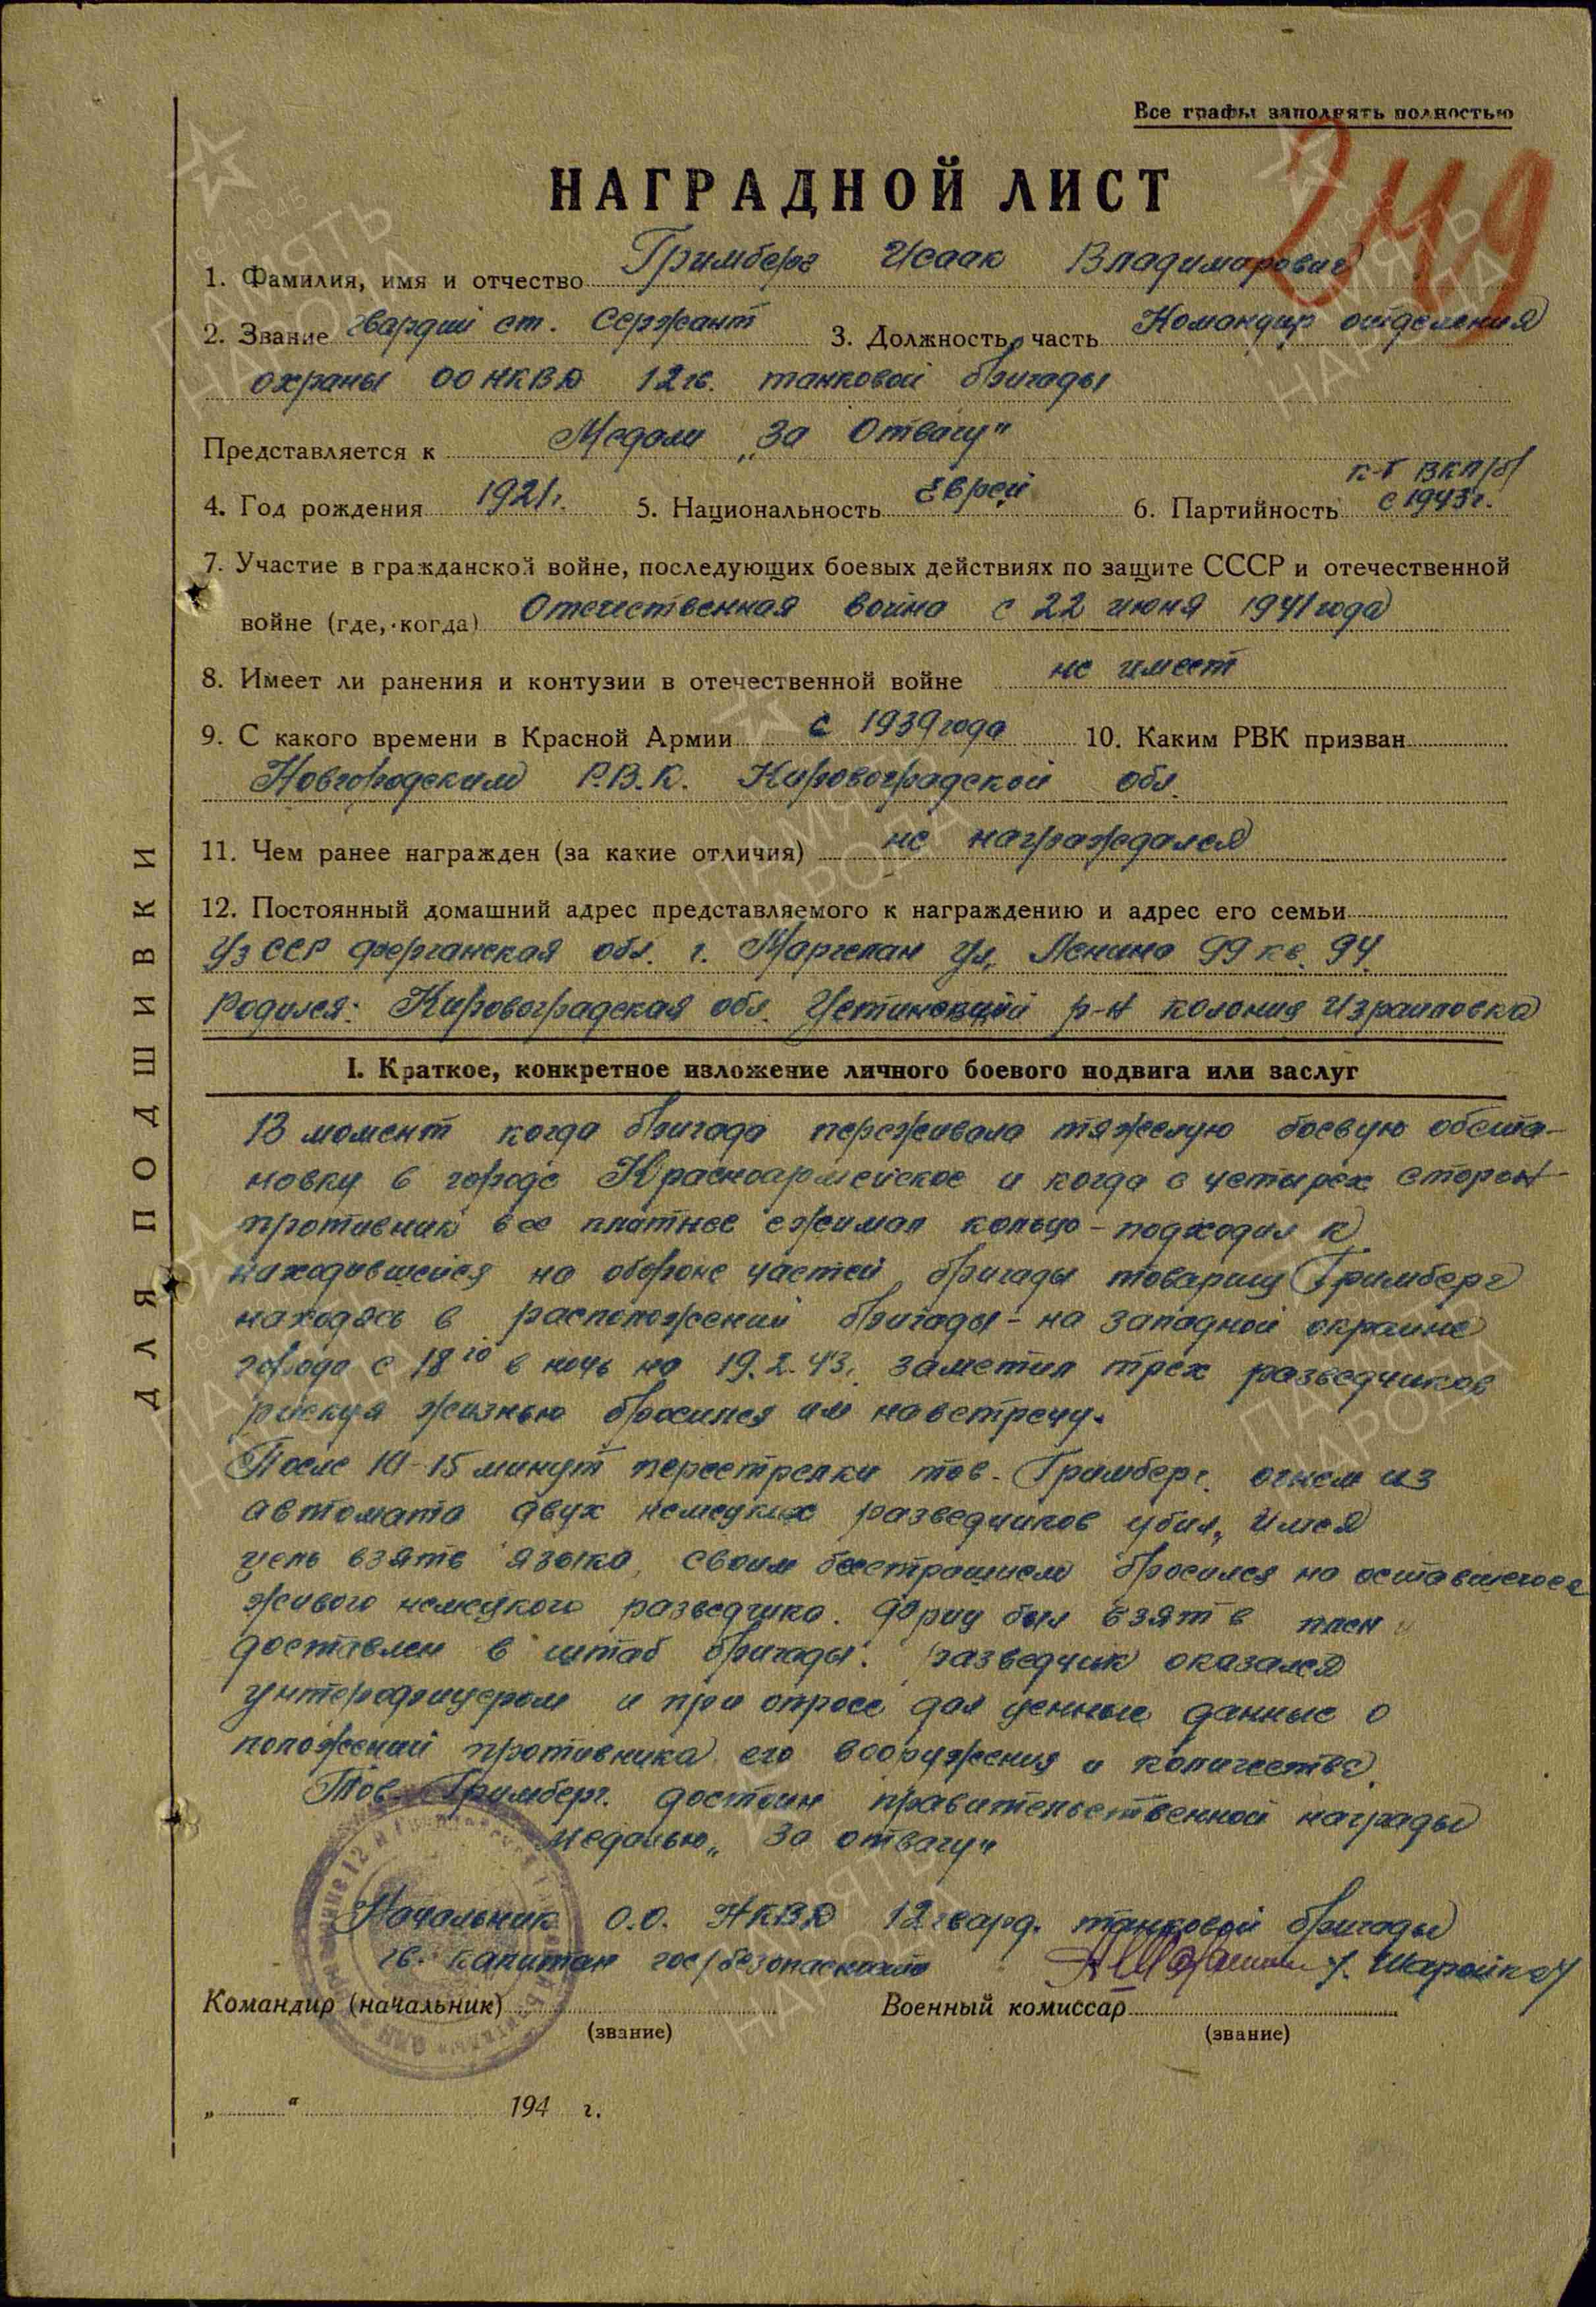 Все графы заполнять полностью
НАГРАДНОЙ ЛИСТ
1. Фамилия, имя и отчество Гримберг Исаак Владимирович
2. Звание гвардии ст. Сержант 3. Должность, часть Командир отделения
охраны ОО НКВД 12 гв. танковой бригады
Представляется к Медали „За Отвагу"
к-т ВКП/б/
4. Год рождения 1921 г. 5. Национальность Еврей 6. Партийность с 1943 г.
7. Участие в гражданской войне, последующих боевых действиях по защите СССР и отечественной
войне (где, когда) Отечественная война с 22 июня 1941 года
8. Имеет ли ранения и контузии в отечественной войне не имеет
9. С какого времени в Красной Армии с 1939 года 10. Каким РВК призван
Новгородским Р.В.К. Кировоградской обл.
11. Чем ранее награжден (за какие отличия) не награждался
12. Постоянный домашний адрес представляемого к награждению и адрес его семьи
Уз ССР Ферганская обл. г. Маргелан Ул. Ленина 99 кв. 94.
родился: Кировоградская обл. Устиновский р-н колония Израиловка
I. Краткое, конкретное изложение личного боевого подвига или заслуг
В момент когда бригада переживала тяжелую боевую обста-
новку в городе Красноармейское и когда с четырех сторон
противник все плотнее сжимал кольцо - подходил к
находившейся на обороне частей бригады товарищ Гримберг
находясь в расположений бригады - на западной окраине
города с 18го в ночь на 19.2.43 г. заметил трех разведчиков
рискуя жизнью бросился им навстречу.
После 10-15 минут перестрелки тов. Гримберг. огнем из
автомата двух немецких разведчиков убил, Имея
цель взять языка, своим бесстрашием бросился на оставшегося
живого немецкого разведчика. Фриц был взят в плен и
доставлен в штаб бригады. разведчик оказался
унтерофицером и при опросе дал ценные данные о
положений противника его вооружения и количестве.
Тов. Гримберг. достоин правительственной награды
медалью „За отвагу"
Начальник О.О. НКВД 12 гвард. танковой бригады
гв. капитан госбезопасности /Шаройко/
Командир (начальник) Военный комиссар
(звание) (звание)
„ " 194 г.
ДЛЯ ПОДШИВКИ
ПАМЯТЬ НАРОДА